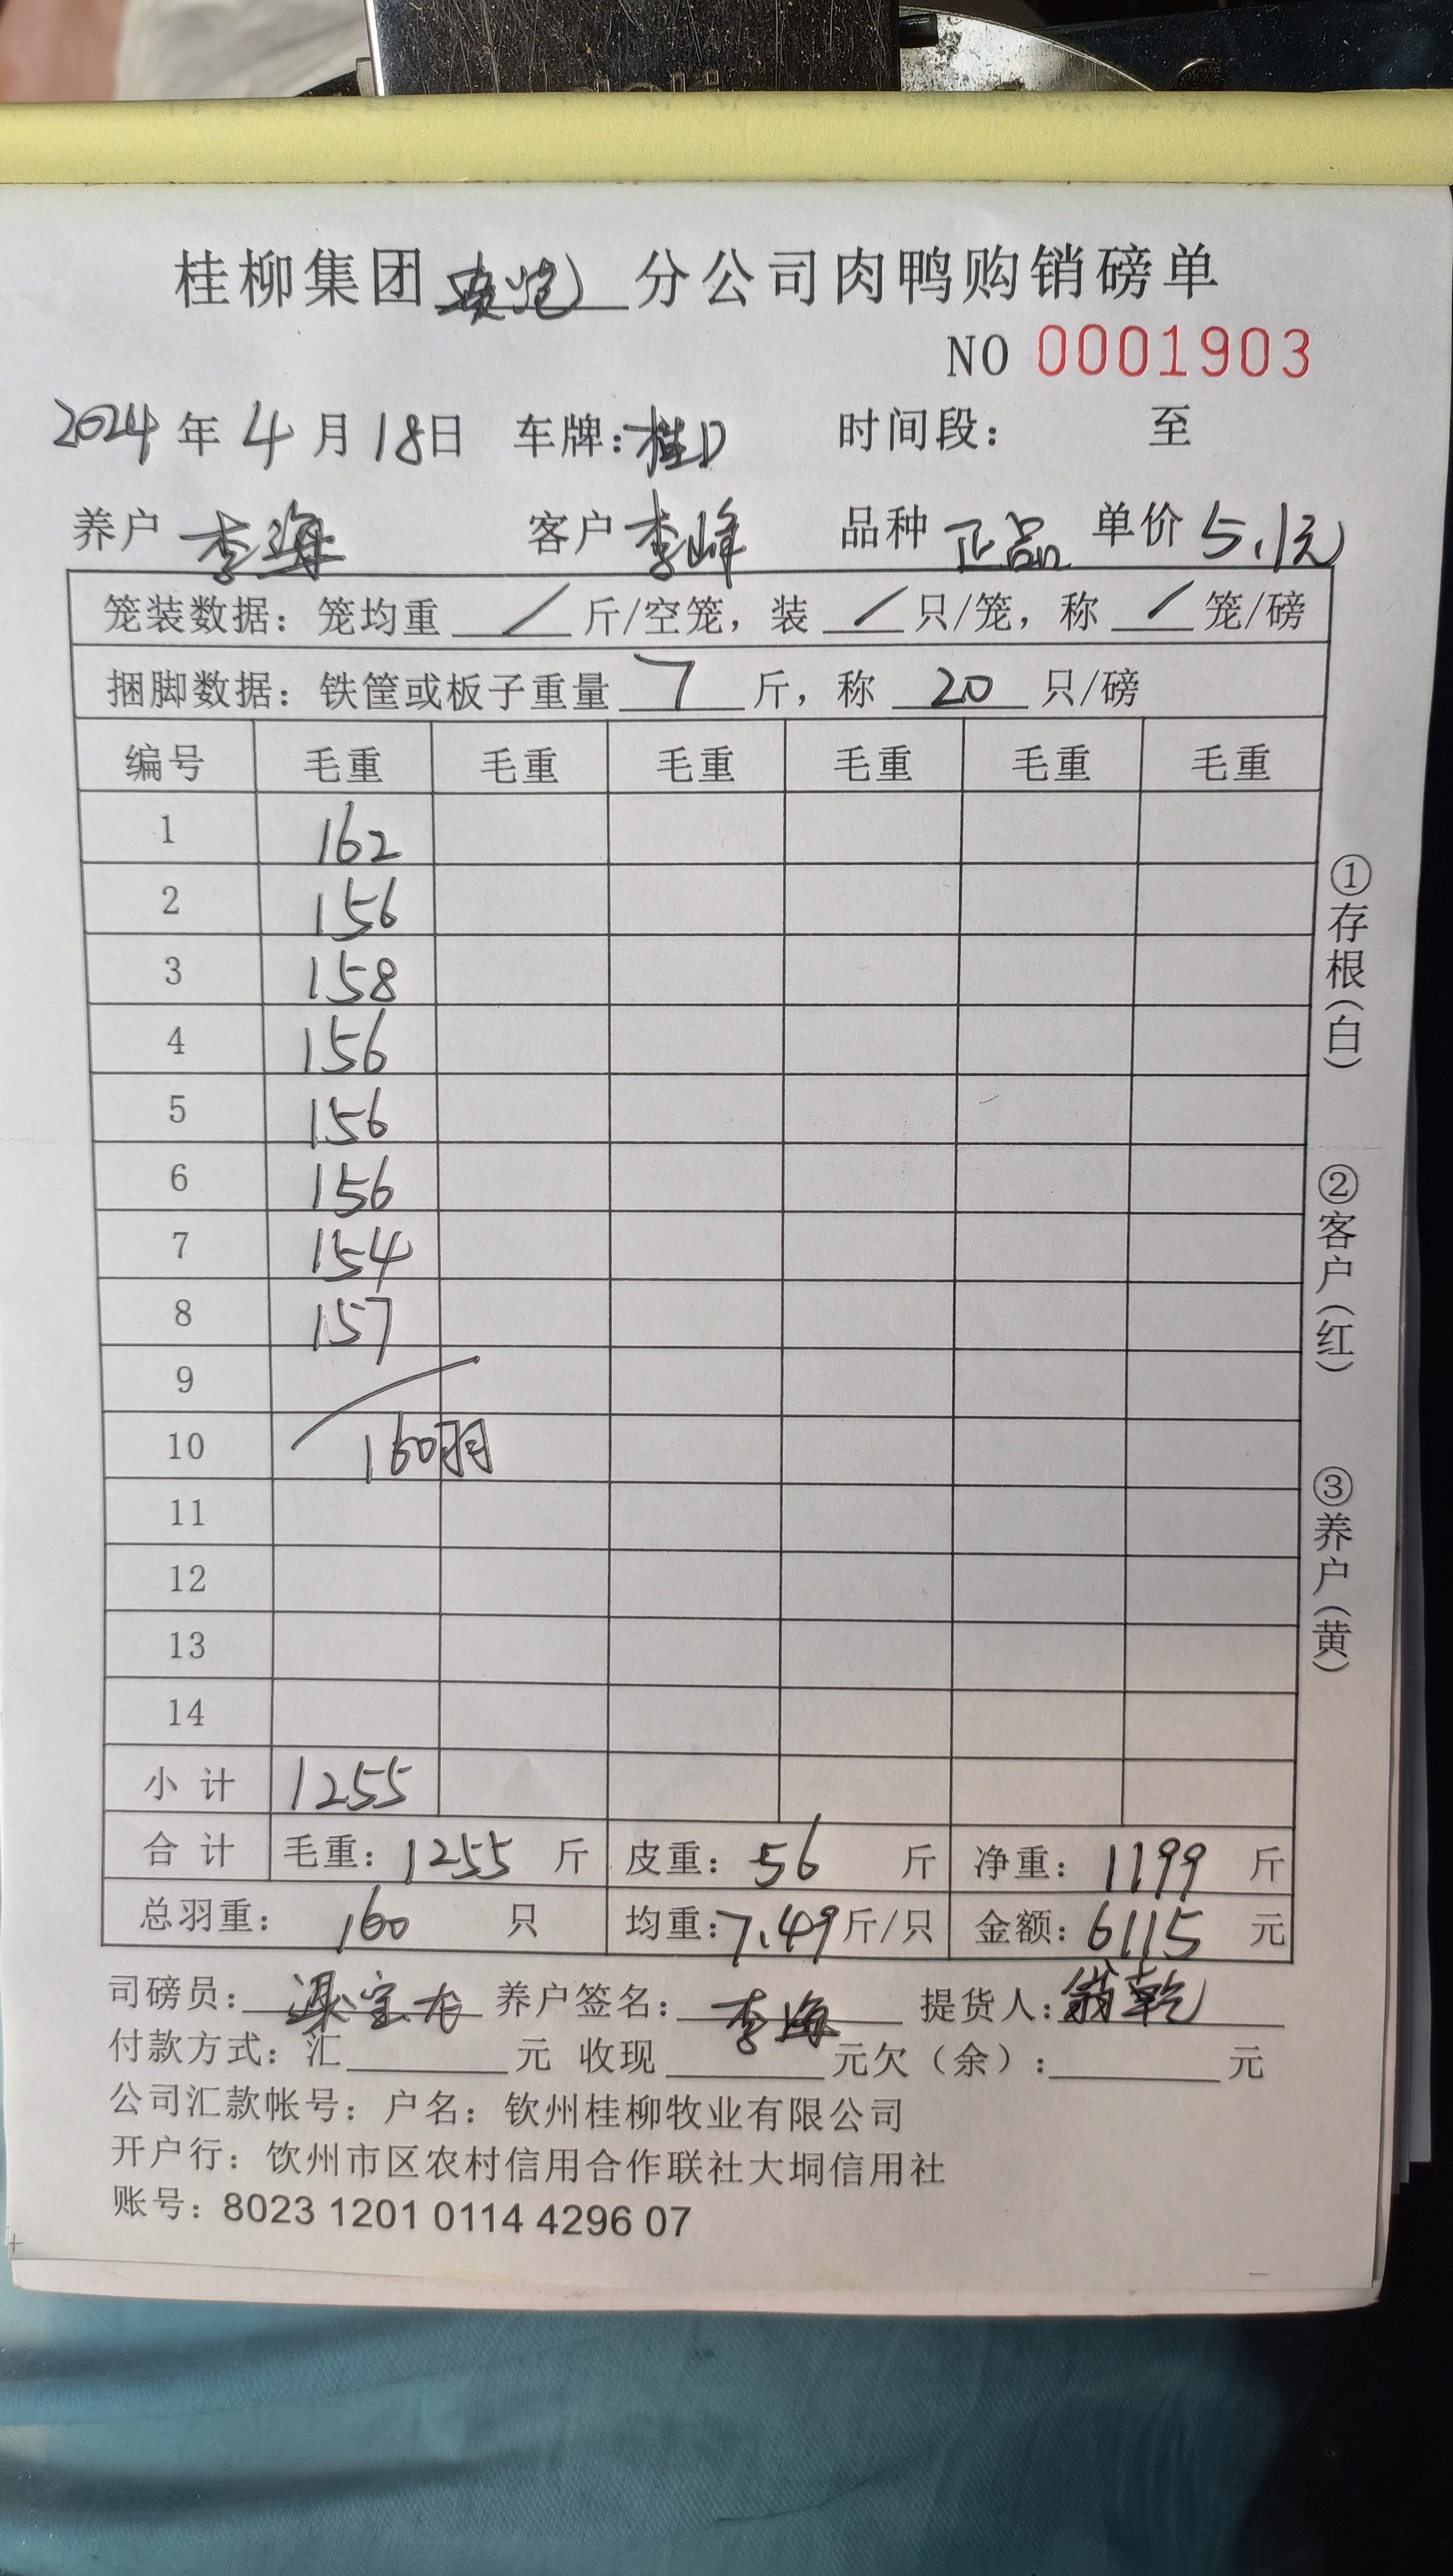 桂柳集团 分公司肉鸭购销磅单
NO 0001903
2024 年 4 月 18日 车牌:桂D 时间段: 至
养户 李海 客户 李峰 品种 正品 单价 5.1元
笼装数据: 笼均重 / 斤/空笼, 装 / 只/笼, 称 / 笼/磅
捆脚数据: 铁筐或板子重量 7 斤, 称 20 只/磅
编号 毛重 毛重 毛重 毛重 毛重 毛重
1 162
2 156
3 158
4 156
5 156
6 156
7 154
8 157
9
10 160羽
11
12
13
14
小 计 1255
合 计 毛重: 1255 斤 皮重: 56 斤 净重: 1199 斤
总羽重: 160 只 均重:7.49斤/只 金额: 6115 元
司磅员: 养户签名: 李海 提货人:翁乾
付款方式: 汇 元 收现 元欠（余）: 元
公司汇款帐号: 户名: 钦州桂柳牧业有限公司
开户行: 饮州市区农村信用合作联社大垌信用社
账号: 8023 1201 0114 4296 07
①存根（白）
②客户（红）
③养户（黄）